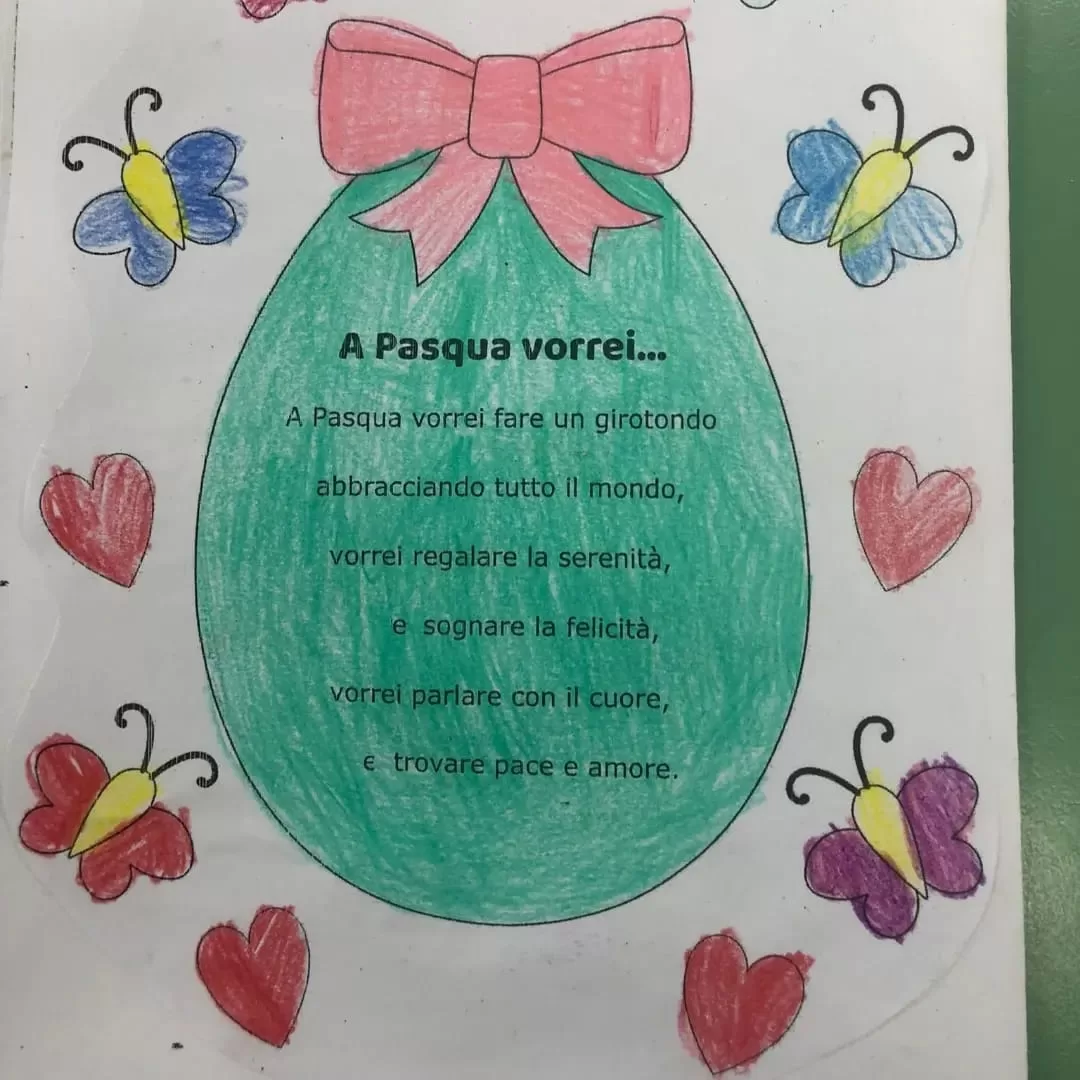 A Pasqua vorrei...
A Pasqua vorrei fare un girotondo
abbracciando tutto il mondo,
vorrei regalare la serenità,
e sognare la felicità,
vorrei parlare con il cuore,
e trovare pace e amore.